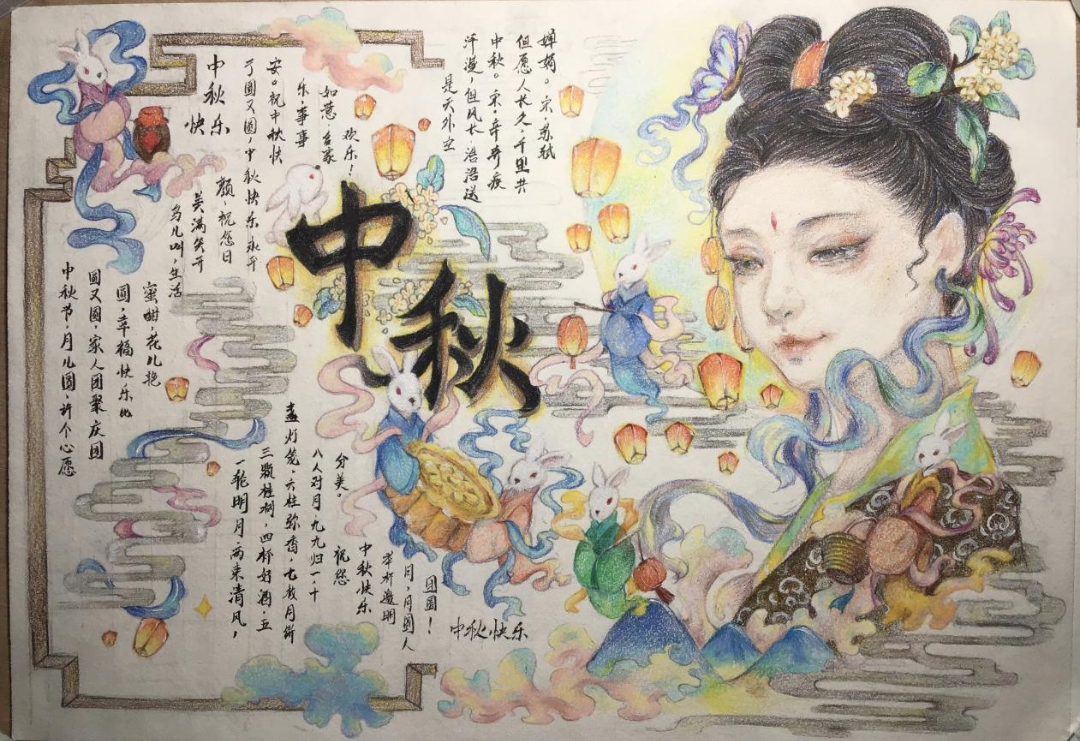 中秋快乐
中秋节，月儿圆，许个心愿
圆又圆，家人团聚庆团
圆，幸福快乐比
蜜甜，花儿艳
鸟儿叫，生活
美满笑开
颜，祝您日
子圆又圆，中秋快乐永平
安。祝中秋快
乐，事事
如意，合家
欢乐！
是天外空
汗漫，但风长，浩浩送
中秋。宋·辛弃疾
但愿人长久，千里共
婵娟。宋·苏轼
中秋
一轮明月，两束清风，
三颗桂树，四杯好酒，五
盏灯笼，六柱弥香，七枚月饼
八人对月，九九归一，十
分美。
祝您
中秋快乐
举杯邀明
月，月圆人
团圆！
中秋快乐